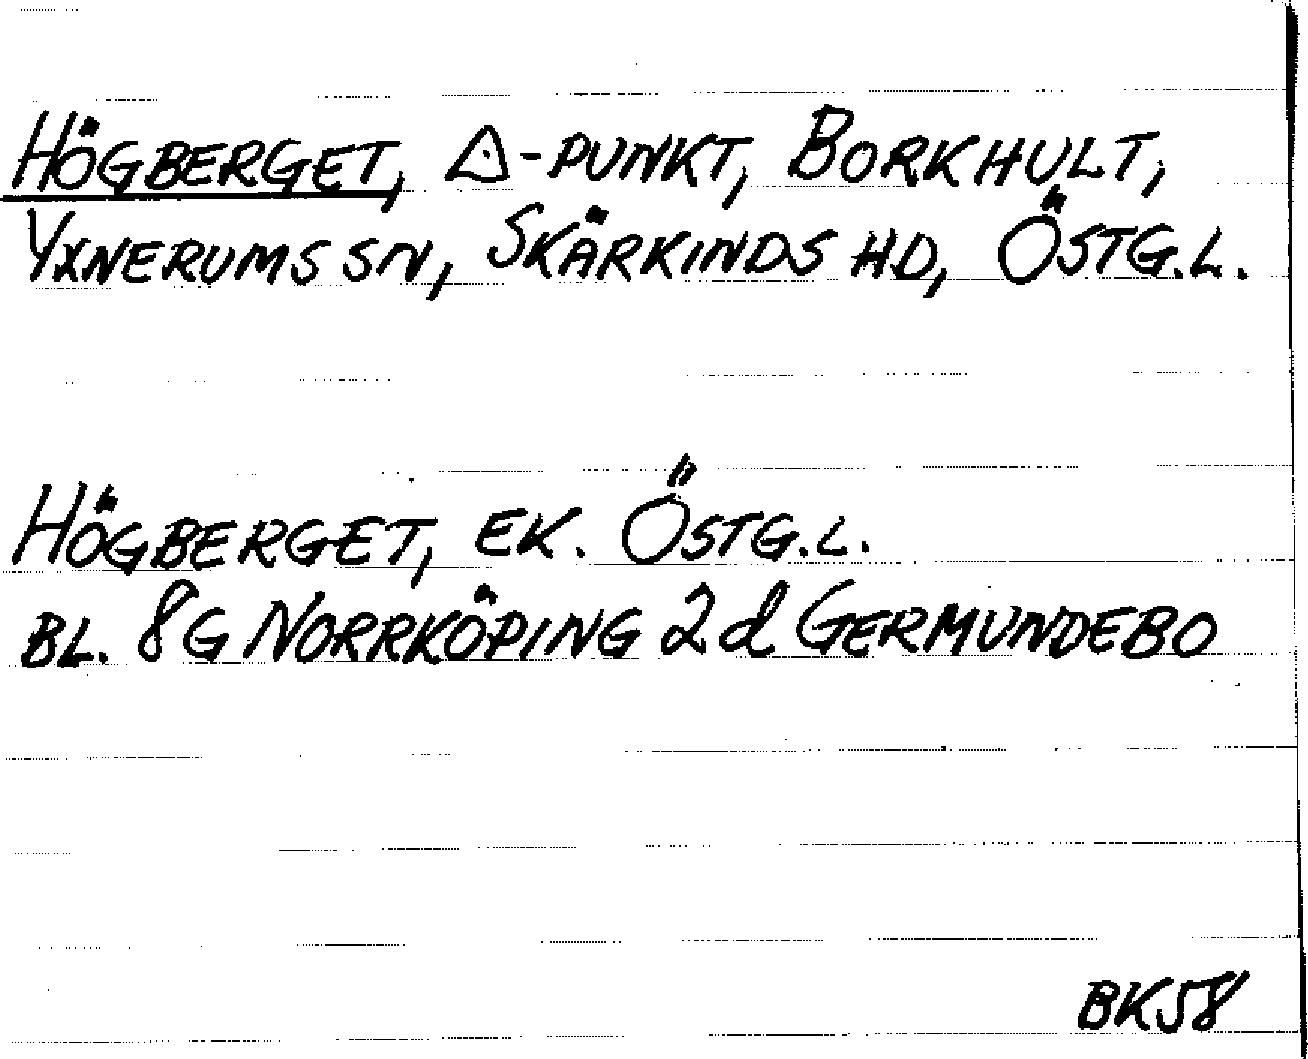 HÖGBERGET, △-PUNKT, BORKHULT,
YXNERUMS SN, SKÄRKINDS HD, ÖSTG.L.
HÖGBERGET, EK. ÖSTG.L.
BL. 8G NORRKÖPING 2d GERMUNDEBO
BK58